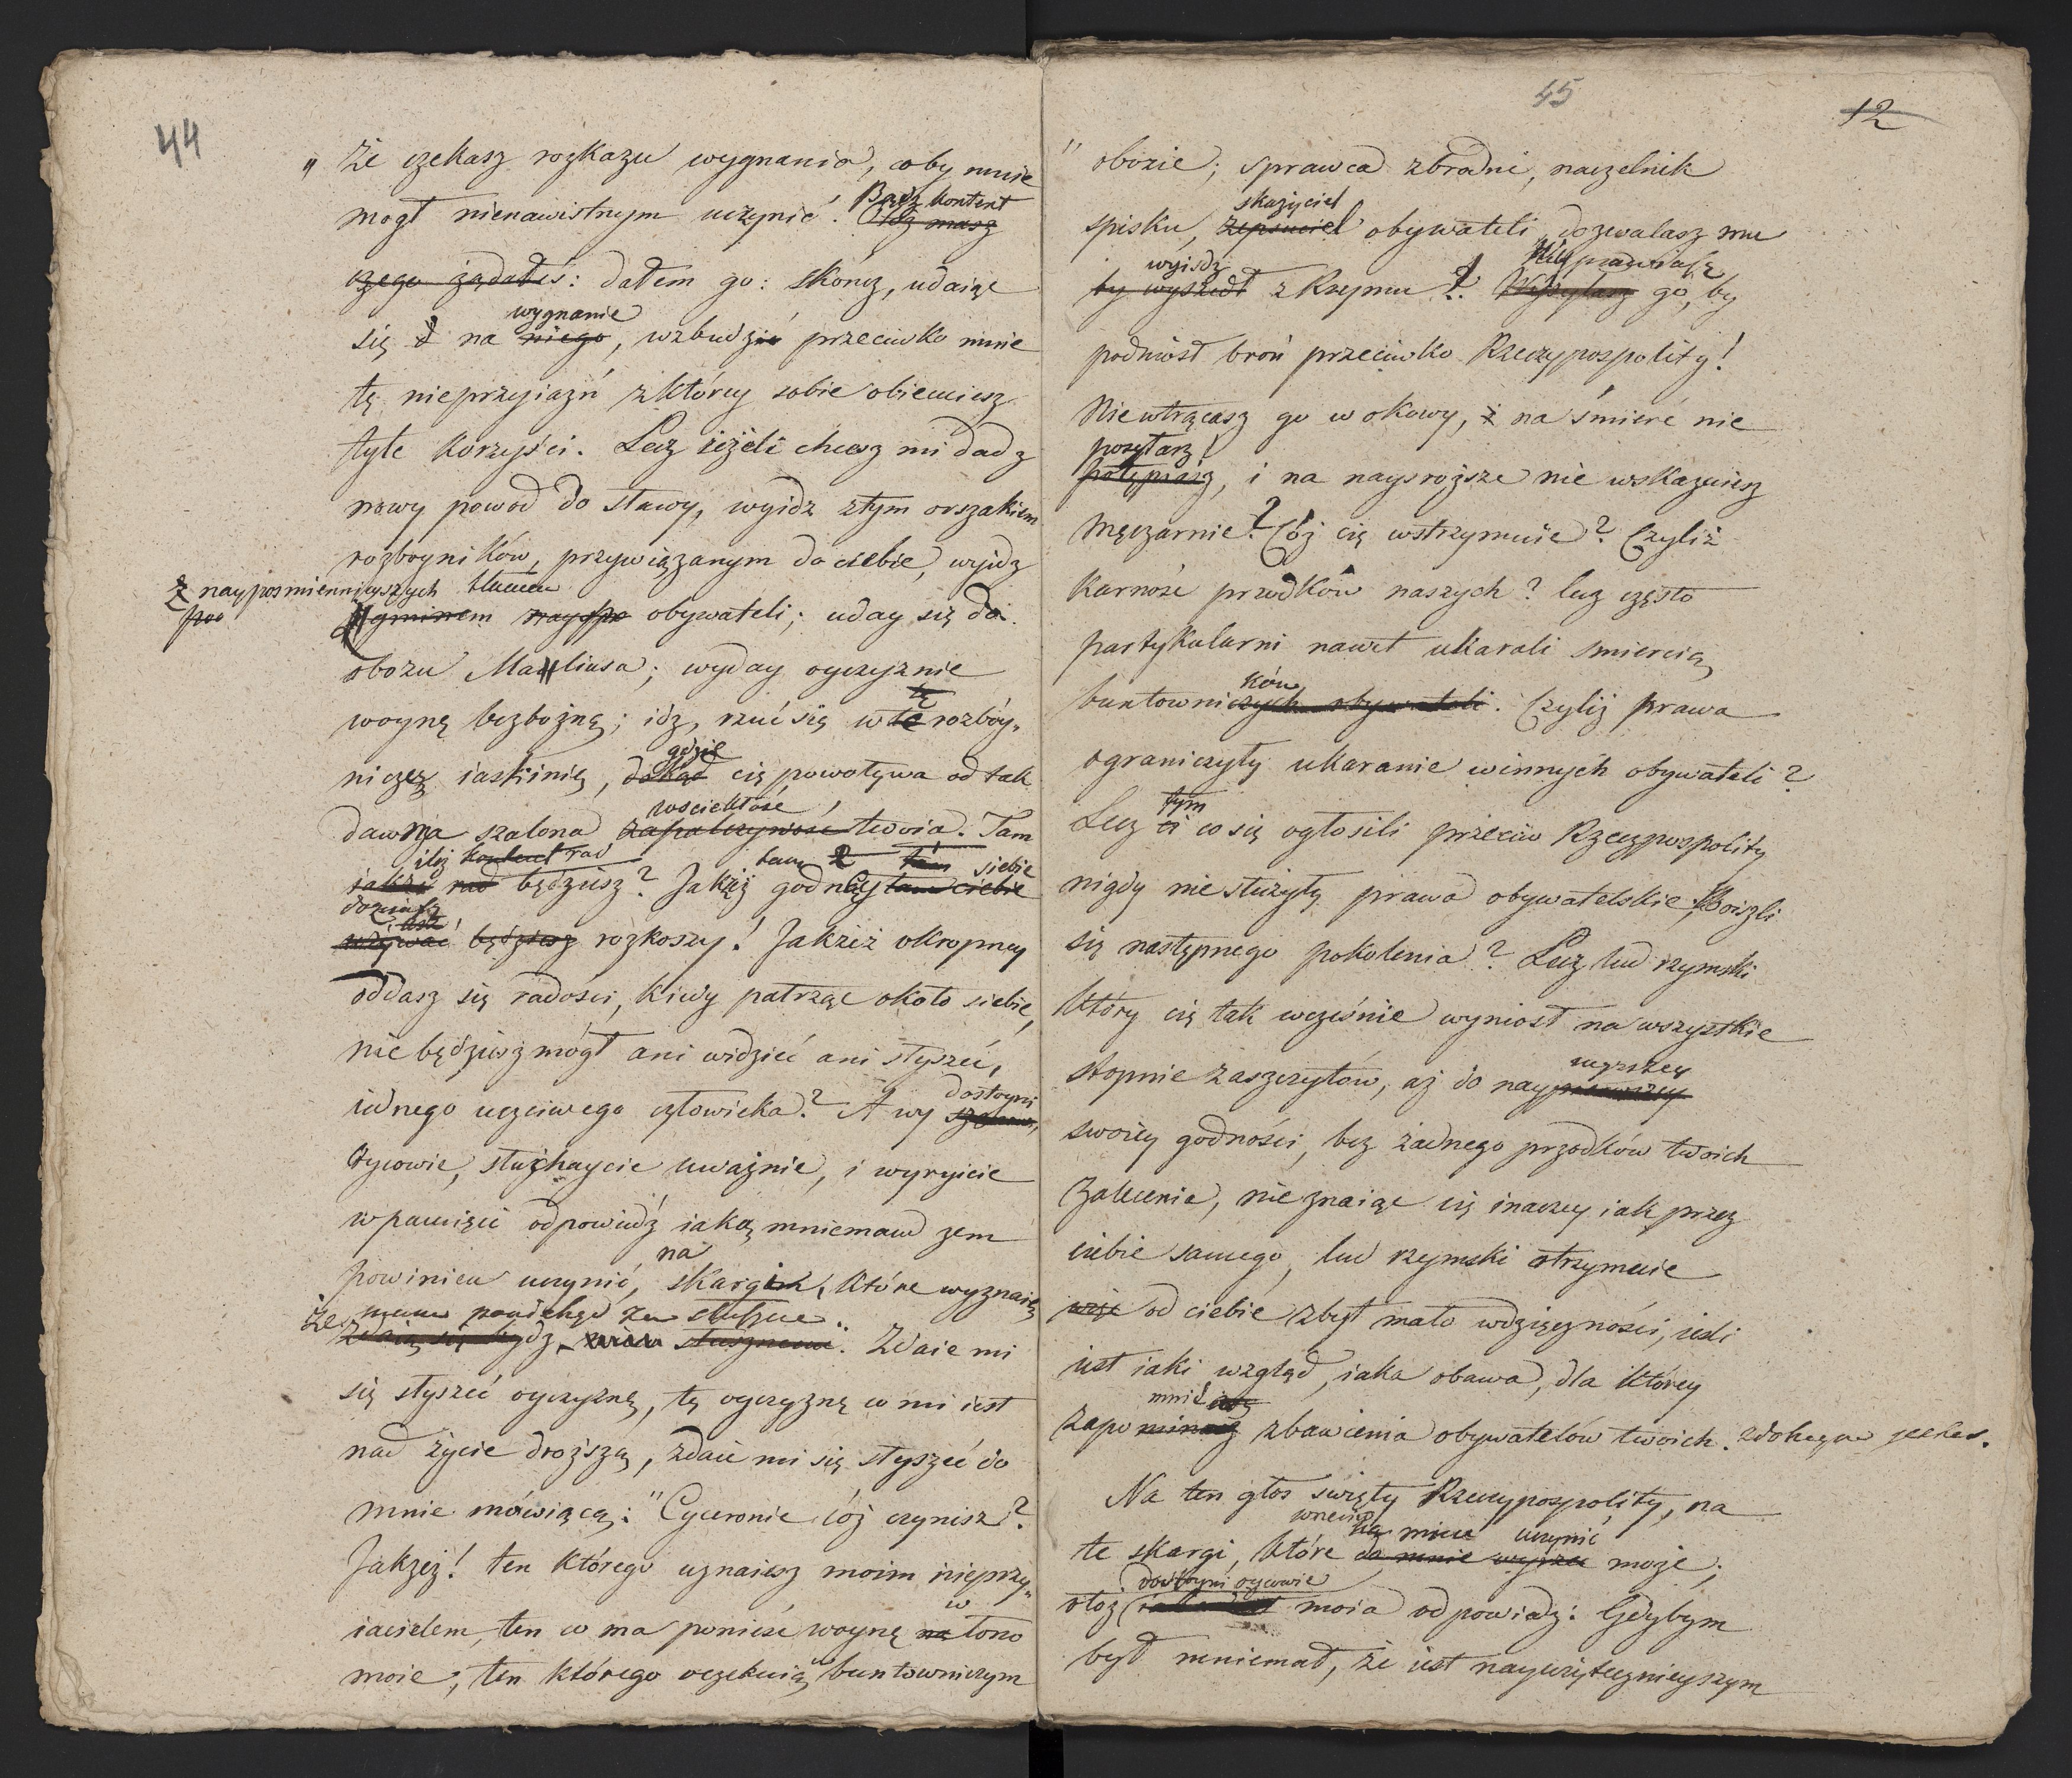 44
" że czekasz rozkazu wygnania, coby mnie
Bądź kontent
mogł nienawistnym uczynić. Otóż masz
czego żądałeś: dałem go: skończ, udaiąc
wygnanie
się na niego, wzbudzić przeciwko mnie
tę nieprzyiaźń z którey sobie obiecuiesz
tyle korzyści. Lecz ieżeli chcesz mi dadz
nowy powod do sławy, wyidz z tym orszakiem
rozboyników, przywiązanym do ciebie, wyjdz
z naypospmiennieyszych tłumem
gminem obywateli; uday się do
obozu Malliusa; wyday oyczyznie
tę
woynę bezbożną; idz, rzuć się w te rozbóy-
gdzie
niczą iaskinię, dokąd cię powoływa od tak
wsciekłość
dawna szalona zapalczywość twoia. Tam
iliż kontent rad
iakże rad będziesz? Jakiż godney tam siebie
doznasz
używać będziesz rozkoszy! Jakżeż okropney
oddasz się radości, kiedy patrząc około siebie,
nie będziesz mógł ani widzieć ani słyszeć,
dostoyni
iednego uczciwego człowieka? A wy
Oycowie, słuchaycie uważnie, i wyryicie
w pamięci odpowiedź iaką mniemam żem
na
powinien uczynić, skargi, które wyznaię
że mam poniekąd za słuszne.
zdaią się bydz słusznemi. Zdaie mi
się słyszeć oyczyznę, tę oyczyznę co mi iest
nad życie droższą, zdaie mi się słyszeć do
mnie mówiącą: "Cyceronie cóż czynisz?
Jakżeż! ten którego uznaiesz moim nieprzy-
w
iacielem, ten co ma ponieść woynę na łono
moie; ten którego oczekuią w buntowniczym
45
12
" obozie; sprawca zbrodni, naczelnik
skaziciel
spisku, zepsuciel obywateli, dozwalasz mu
wyjsdź
by wyszedł z Rzymu! Wysyłasz go, by
podniosł broń przeciwko Rzeczypospolity!
Nie wtrącasz go w okowy, i na śmierć nie
posyłasz!
potępiasz, i na naysroższe nie wskazuiesz
męczarnie? Cóż cię wstrzymuie? Czyliż
karność przodków naszych? lecz często
partykularni nawet ukarali smiercią
ków
buntowniczych obywateli. Czyliż prawa
ograniczyły ukaranie winnych obywateli?
tym
Lecz ci co się ogłosili przeciw Rzeczypospolity
nigdy nie służyły prawa obywatelskie. Boiszli
się następnego pokolenia? Lecz lud rzymski
który cię tak wcześnie wyniosł na wszystkie
wyższey
stopnie zaszczytów, aż do naypierwszey
swoiey godności, bez żadnego przodków twoich
zalecenia, nie znaiąc cię inaczey iak przez
ciebie samego, lud rzymski otrzymuie
od ciebie zbyt mało wdzięczności, ieśli
iest iaki wzgląd, iaka obawa, dla którey
zapominasz zbawienia obywatelów twoich.
Na ten głos święty Rzeczypospolity, na
mnie uczynić
te skargi, które da mnie wyrzec może;
dostoyni oycowie
otoż moia odpowiedz: Gdybym
był mniemał, że iest nayużytecznieyszym